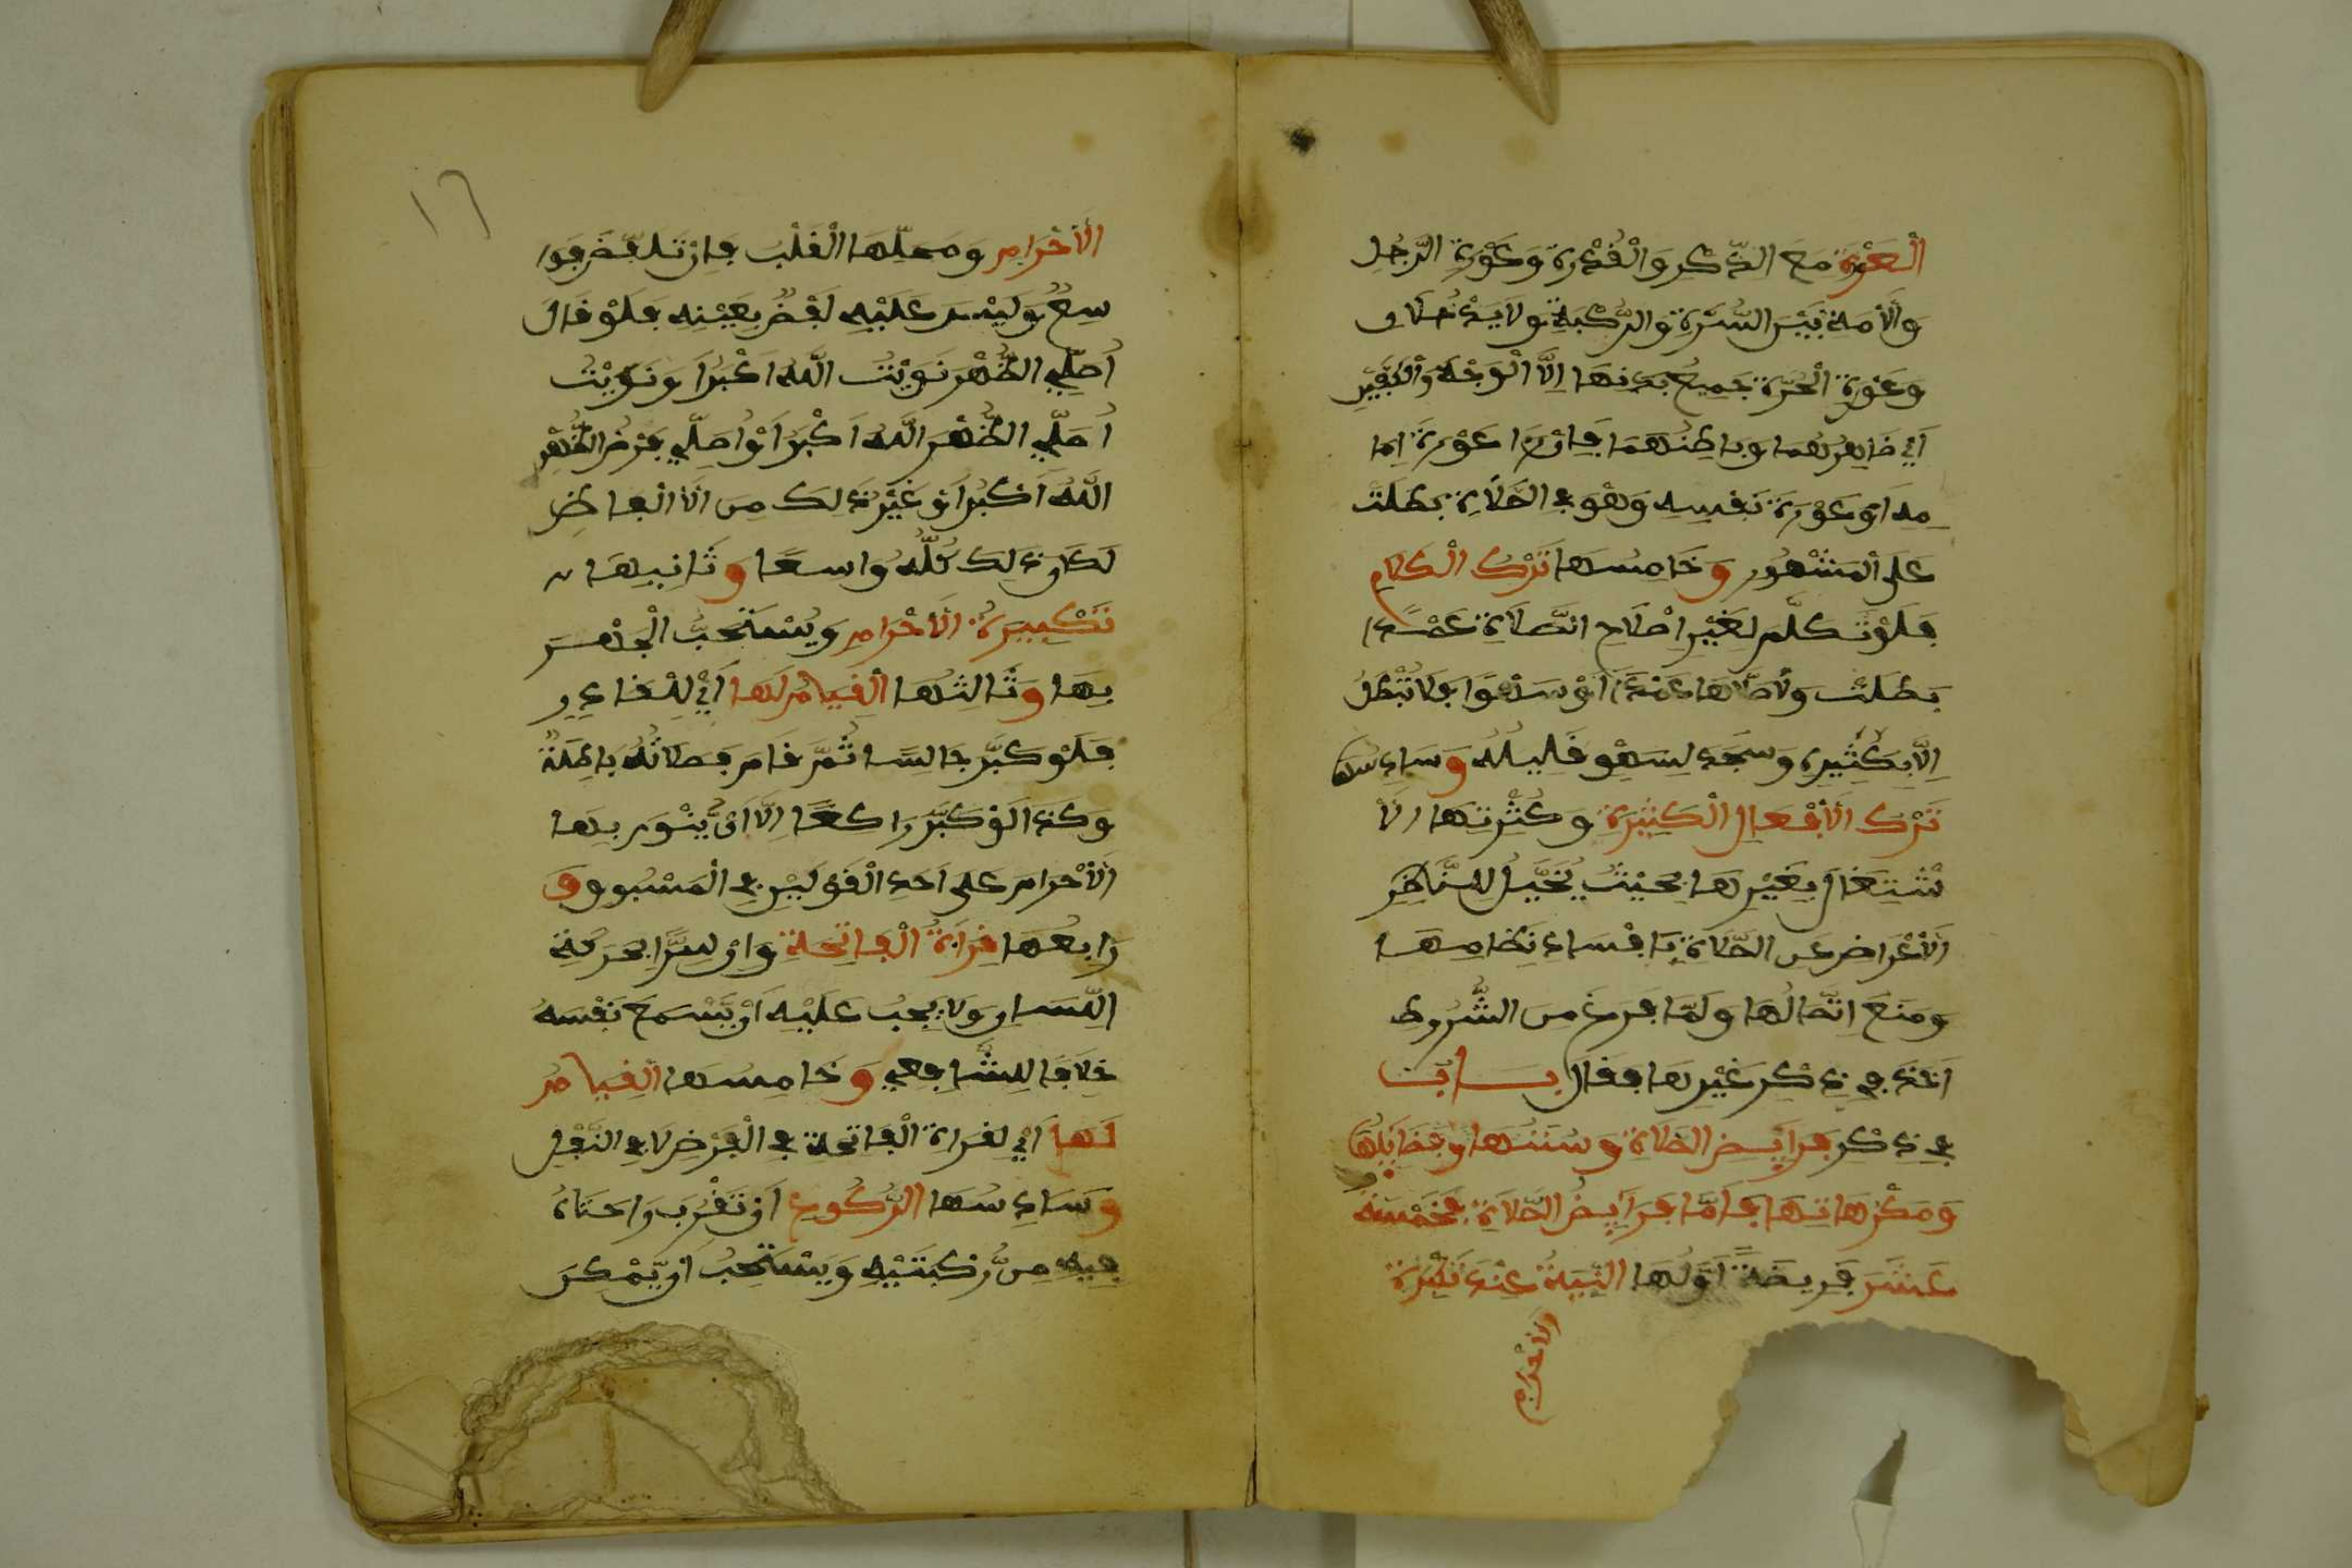 الْعَوْرَةِ مَعَ الذِّكْرِ وَالْقُدْرَةِ وَعَوْرَةُ الرَّجُلِ
وَالْأَمَةِ بَيْنَ السُّرَّةِ وَالرُّكْبَةِ وَلَا يَدْخُلَانِ
وَعَوْرَةُ الْحُرَّةِ جَمِيعُ بَدَنِهَا إِلَّا الْوَجْهَ وَالْكَفَّيْنِ
أَيْ ظَاهِرُهُمَا وَبَاطِنُهُمَا فَإِنْ رَءَا عَوْرَةَ إِمَا
مِهِ أَوْ عَوْرَةَ نَفْسِهِ وَهُوَ فِي الصَّلَاةِ بَطَلَتْ
عَلَى الْمَشْهُورِ وَخَامِسُهَا تَرْكُ الْكَلَامِ
فَلَوْ تَكَلَّمَ لِغَيْرِ إِصْلَاحِ الصَّلَاةِ عَمْدًا
بَطَلَتْ وَلِأَصْلَاحِهَا عَمْدًا أَوْ سَهْوًا فَلَا تُبْطِلُ
إِلَّا بِكَثِيرِهِ وَسَجَدَ لِسَهْوِ قَلِيلِهِ وَسَادِسُهَا
تَرْكُ الْأَفْعَالِ الْكَثِيرَةِ وَكَثْرَتُهَا الْأَ
شْتِغَالُ بِغَيْرِهَا بِحَيْثُ يُخَيَّلُ لِلنَّاظِرِ
الْأَعْرَاضُ عَنِ الصَّلَاةِ بِإِفْسَادِ نِظَامِهَا
وَمَنَعَ اتِّصَالُهَا وَلَمَّا فَرَغَ مِنَ الشُّرُوطِ
أَخَذَ فِي ذِكْرِ غَيْرِهَا فَقَالَ بَابٌ
فِي ذِكْرِ فَرَائِضِ الصَّلَاةِ وَسُنَنِهَا وَفَضَائِلِهَا
وَمَكْرُهَاتِهَا فَأَمَّا فَرَائِضُ الصَّلَاةِ فَخَمْسَةَ
عَشَرَ فَرِيضَةً أَوَّلُهَا النِّيَّةُ عِنْدَ تَكْبِيرَةِ
الْأَحْرَامِ
١٦
الْأَحْرَامِ وَمَحَلُّهَا الْقَلْبُ فَإِنْ تَلَفَّظَ فَوَا
سِعٌ وَلَيْسَ عَلَيْهِ لَفْظٌ بِعَيْنِهِ فَلَوْ قَالَ
أُصَلِّي الظُّهْرَ نَوَيْتُ اللَّهُ أَكْبَرُ أَوْ نَوَيْتُ
أُصَلِّي الظُّهْرَ اللَّهُ أَكْبَرُ أَوْ أُصَلِّي فَرْضَ الظُّهْرِ
اللَّهُ أَكْبَرُ أَوْ غَيْرَ ذَلِكَ مِنَ الْأَلْفَاظِ
لَكَانَ ذَلِكَ كُلُّهُ وَاسِعًا وَثَانِيهَا
تَكْبِيرَةُ الْأَحْرَامِ وَيُسْتَحَبُّ الْجَهْرُ
بِهَا وَثَالِثُهَا الْقِيَامُ لَهَا أَيْ لِلْقَادِرِ
فَلَوْ كَبَّرَ جَالِسًا ثُمَّ قَامَ فَصَلَاتُهُ بَاطِلَةٌ
وَكَذَا لَوْ كَبَّرَ رَاكِعًا إِلَّا أَنْ يَنْوِيَ بِهَا
الْأَحْرَامَ عَلَى أَحَدِ الْقَوْلَيْنِ فِي الْمَسْبُوقِ وَ
رَابِعُهَا قِرَاءَةُ الْفَاتِحَةِ وَإِنْ سِرًّا بِحَرَكَةِ
اللِّسَانِ وَلَا يَجِبُ عَلَيْهِ أَنْ يَسْمَعَ نَفْسَهُ
خِلَافًا لِلشَّافِعِي وَخَامِسُهَا الْقِيَامُ
لَهَا أَيْ لِقِرَاءَةِ الْفَاتِحَةِ فِي الْفَرْضِ لَا فِي النَّفْلِ
وَسَادِسُهَا الرُّكُوعُ أَنْ تَقْرُبَ رَاحَتَاهُ
فِيهِ مِنْ رُّكْبَتَيْهِ وَيُسْتَحَبُّ أَنْ يُّمْكِنَ